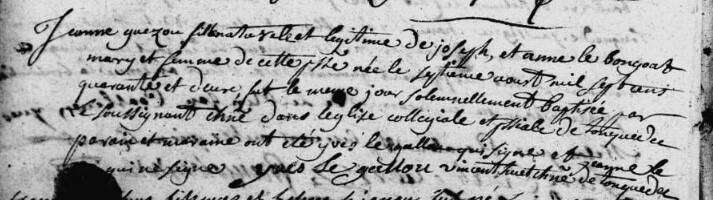 Jeanne quezou fille naturelle et legitime de joseph, et anne le bongoat
mary et femme de cette psse née le septieme aout mil sept cens
quarante et deux, fut le meme jour solemnellement baptisée par
le soussignant chne dans l'eglise collegiale et filiale de tonquedec
parain et maraine ont été yves le gallou qui signe et jeanne le
qui ne signe yves Le gallou vincent huet chne de tonquedec